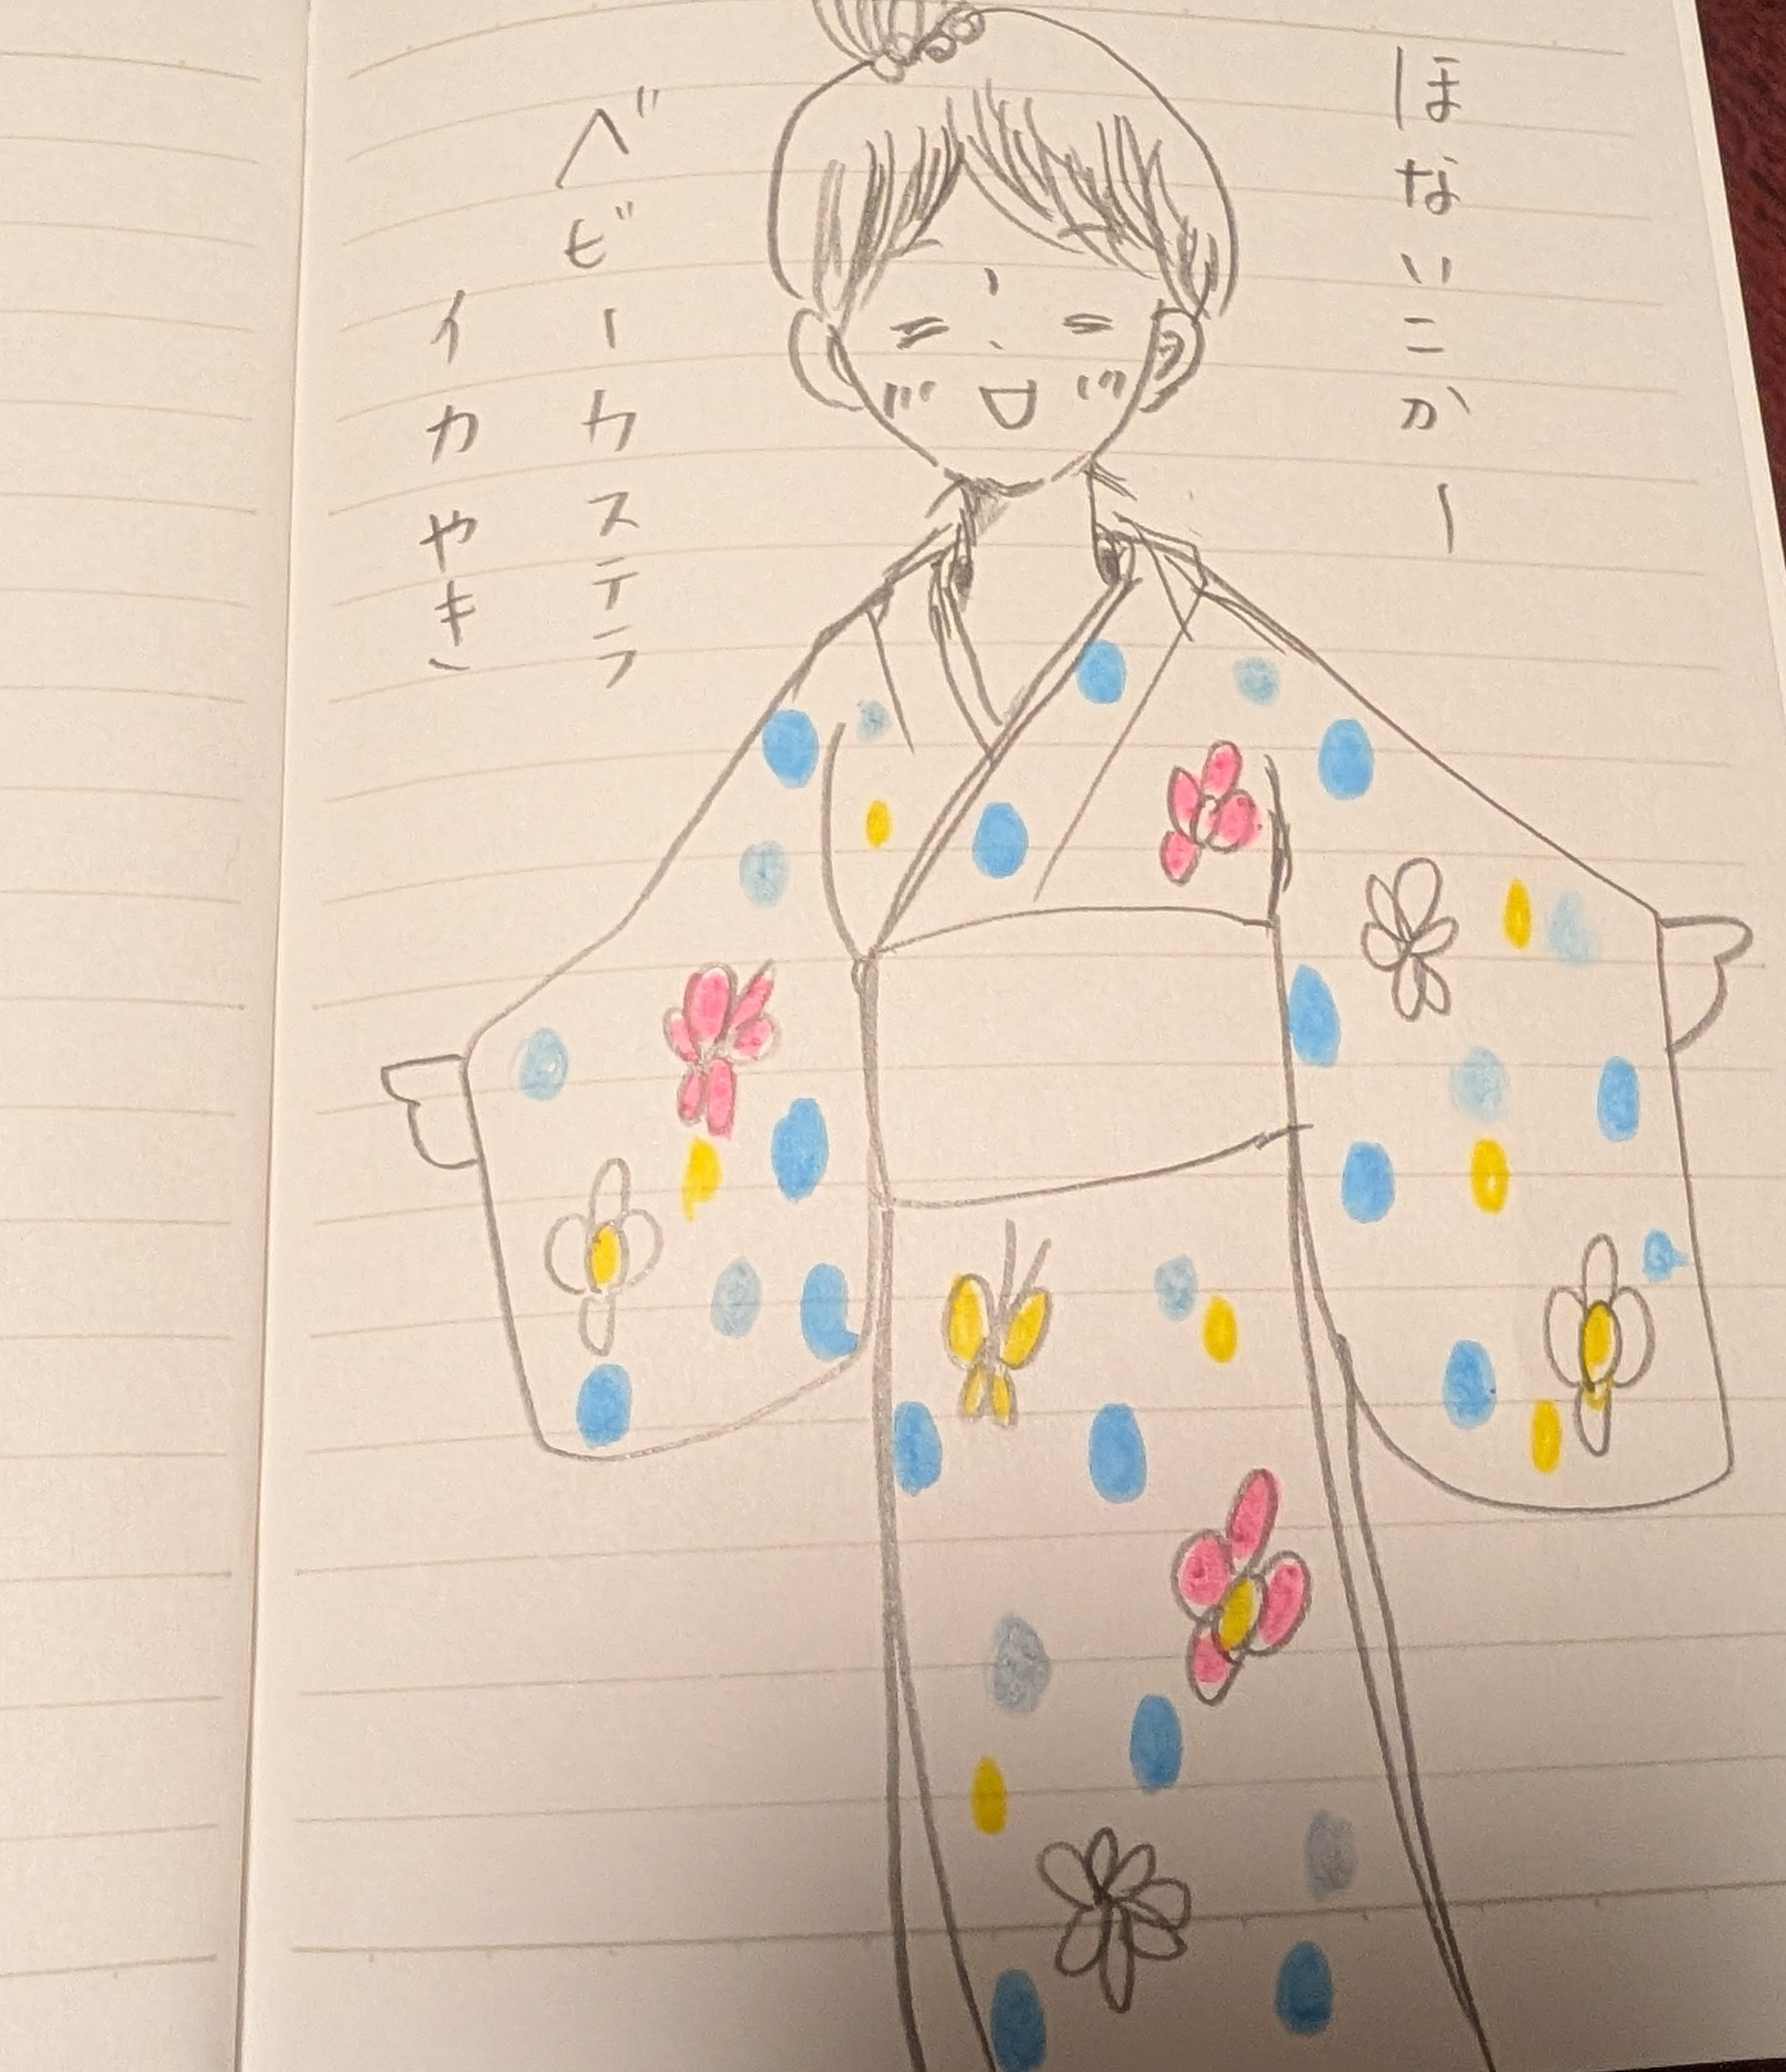 ほないこかー
ベビーカステラ
イカやき